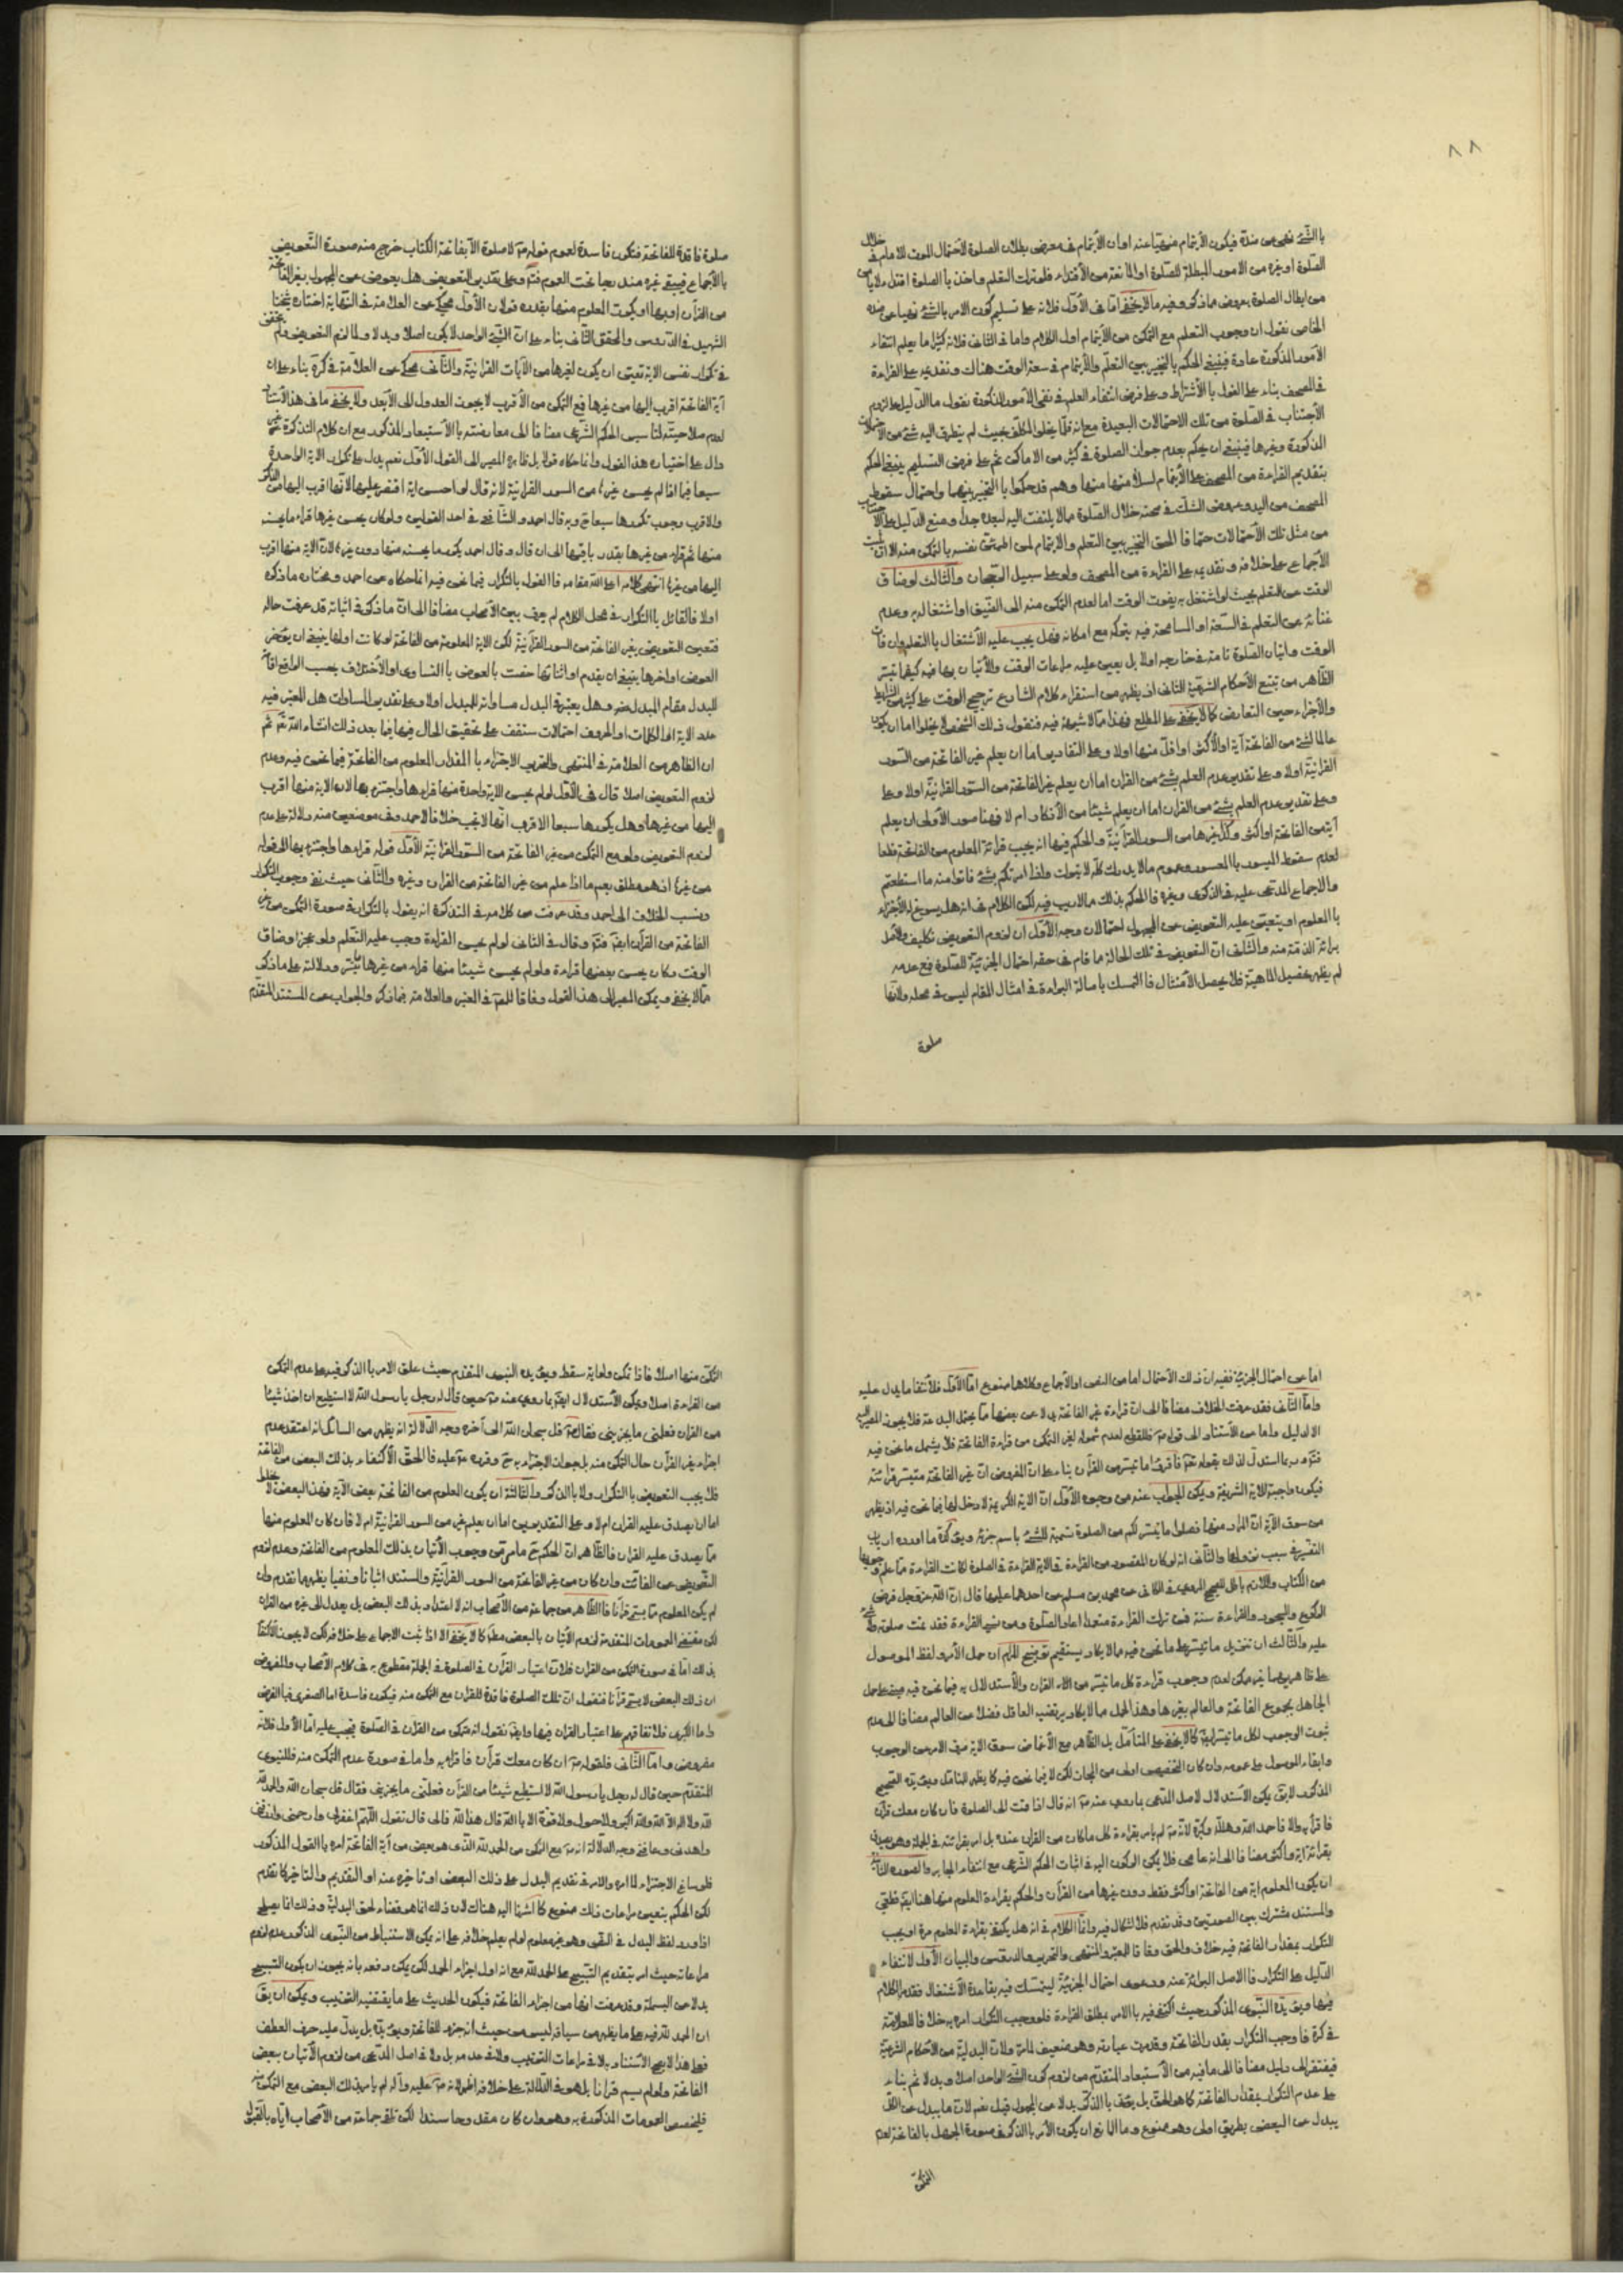 ٨٨
بالشئ نهى عن ضدّه فيكون الأيتمام منهيّا عنه اما ان الأيتمام فى معرض بطلان الصلوة لأحتمال الموت للامام فى خلال
الصلوة او غيره من الامور المبطلة للصلوة او المانعة من الأقتداء فلو ترك التعلم واخذ بالصلوة اقتداء
من ابطال الصلوة بعروض ما ذكر وفيه ما لا يخفى امّا فى الأوّل فلانه على تسليم كون الامر بالشئ نهيا عن ضده
الخاص نقول ان وجوب التعلم مع التمكن من الأيتمام اول الكلام واما فى الثانى فلانه كثيرا ما يعلم انتفاء
الأمور المذكورة عادة فينبغى الحكم بالتخيير بين التعلّم والأيتمام فى سعة الوقت هناك ونقديمه على القراءة
فى المصحف بناء على القول بالأشتراط وعلى فرض انتفاء العلم فى نفى الأمور المذكورة نقول ما الدليل على لزوم
الأجتناب فى الصلوة من تلك الاحتمالات البعيدة مع انه قلّما يخلوا المكلّف بحيث لم يتطرق اليه شئ من الأحتمالات
المذكورة وغيرها فينبغى ان يحكم بعدم جواز الصلوة فى كثير من الاماكن ثم على فرض التسليم ينبغى الحكم
بتقديم القراءة من المصحف على الأيتمام لسلامتها منها وهم قد حكموا بالتخيير بينهما واحتمال سقوط
المصحف من اليد وعروض الشك فى صحته خلال الصلوة مما لا يلتفت اليه لبعده جدّا ومنع الدليل على الاجتناب
من مثل تلك الأحتمالات حتما فالحق التخيير بين التعلم والايتمام لمن اطمئنّ نفسه بالتمكن منه الا ان يثبت
الأجماع على خلافه وتقديمه على القراءة من المصحف ولو على سبيل الرجحان والثالث لو ضاق
الوقت عن التعلم بحيث لو اشتغل به يفوت الوقت اما لعدم التمكن منه الى الضيق او اشتغاله به وعدم
الوقت واتيان الصلوة تامة فى خارجه اولا بل يعين عليه مراعات الوقت والأتيان بها فيه كيفما تيسّر
الظاهر من تتبع الأحكام الشرعيّة الثانى اذ يظهر من استقراء كلام الشارع ترجيح الوقت على كثير من الشرايط
والأجزاء حين التعارض كما لا يخفى على المطلع فهذا مما لا شبهة فيه فنقول ذلك الشخص لا يخلوا اما ان يكون
عالما لشئ من الفاتحة آية او اكثر او اقل منها اولا وعلى التقادير اما ان يعلم غير الفاتحة من السور
القرانيّة اولا وعلى تقدير عدم العلم بشئ من القران اما ان يعلم غير الفاتحة من السور القرانيّة اولا وعلى
وعلى تقدير عدم العلم بشئ من القران اما ان يعلم شيئا من الأذكار ام لا فهنا صور الأولى ان يعلم
آية من الفاتحة او اكثر وكل غيرها من السور القرآنيّة والحكم فيها انه يجب قرائة المعلوم من الفاتحة قطعا
لعدم سقوط الميسور بالمعسور وعموم ما لا يدرك كلّه لا يترك واذا امرتكم بشئ فاتوا منه ما استطعتم
والاجماع المدّعى عليه فى الذكرى وغيره فالحكم بذلك مما لا ريب فيه لكن الكلام فى انه هل يسوغ له الأجتزاء
بالمعلوم او يتعيّن عليه التعويض عن المجهول احتمالان وجه الأوّل ان لزوم التعويض تكليف والأصل
برائة الذمّة منه والثانى انّ التعويض فى تلك الحالة ما قام فى حقه احتمال الجزئيّة للصلوة فمع عدمه
لم يظهر تحصيل الماهيّة فلا يحصل الأمتثال فالتمسك باصالة البراءة فى امثال المقام ليس فى محله ولانّها
صلوة
صلوة فاقدة للفاتحة فتكون فاسدة لعموم قوله لا صلوة الا بفاتحة الكتاب خرج منه صورة التّعويض
بالأجماع فيبقى غيره مندرجا تحت العموم وعلى تقدير التعويض هل يعوض عن المجهول بغير الفاتحة
من القرآن او بها او يكون المعلوم منها بقدره قولان الأوّل محكى عن العلامة فى النّهاية اختاره شيخنا
الشهيد فى الدّروس والمحقق الثّانى بناء على انّ الشّئ الواحد لا يكون اصلا وبدلا ولما لزم التعويض ولم
فى تكرار نفس الاية تعيّن ان يكون لغيرها من الآيات القرانيّة والثّانى محكى عن العلاّمة فى كرة بناء على ان
آية الفاتحة اقرب اليها من غيرها فمع التمكن من الأقرب لا يجوز العدول الى الأبعد ولا يخفى ما فى هذا الأستناد
لعدم صلاحيته لتاسيس الحكم الشّرعى مضافا الى معارضته بالأستبعاد المذكور مع ان كلام التذكرة غير
دال على اختياره هذا القول وانما حكاه قولا بل ظاهره المصير الى القول الأوّل نعم يدل على تكرار الاية الواحدة
سبعا فيما اذا لم يحسن غيرها من السور القرانيّة لانه قال لو احسن اية اقتصر عليها لانّها اقرب اليها من الذكر
والاقرب وجوب تكررها سبعا وبه قال احمد والشّافعى فى احد القولين ولو كان يحسن غيرها قراء ما يحسنه
منها ثم قراء من غيرها بقدر باقيها الى ان قال وقال احمد يكرر ما يحسنه منها دون غيرها لان الاية منها اقرب
اليها من غيرها انتهى كلامه اعلى اللّه مقامه فالقول بالتكرار فيما نحن فيه انما حكاه عن احمد ومختاره ما ذكره
اولا فالقائل بالتكرار فى محل الكلام لم يعرف بين الأصحاب مضافا الى انّ ما ذكر فى اثباته قد عرفت حاله
فتعيين التعويض بغير الفاتحة من السور القرآنيّة لكن الاية المعلومة من الفاتحة لو كانت اولها ينبغى ان يؤخر
العوض او اخرها ينبغى ان يقدم او اثنائها حفت بالعوض بالتساوى او الأختلاف بحسب الواقع اقامة
للبدل مقام المبدل منه وهل يعتبر فى البدل مساواته للمبدل اولا وعلى تقدير المساوات هل المعتبر فيه
عدد الاية او الكلمات او الحروف احتمالات ستقف على تحقيق الحال فيها فيما بعد ذلك انشاء اللّه تعالى ثم
ان الظاهر من العلامة فى المنتهى والتحرير الاجتزاء بالمقدار المعلوم من الفاتحة فيما نحن فيه وعدم
لزوم التعويض اصلا قال فى الأوّل لو لم يحسن الا اية واحدة منها قراءها واجتزء بها لان الاية منها اقرب
اليها من غيرها وهل يكررها سبعا الاقرب انّها لا يجب خلافا لاحمد وفى موضعين منه دلالة على عدم
لزوم التعويض ولو مع التمكن من غير الفاتحة من السور القرانيّة الأوّل قوله قراءها واجتزء بها الى قوله
من غيرها اذ هو مطلق يعم ما اذا علم من غير الفاتحة من القران وغيره والثّانى حيث نفى وجوب التكرار
ونسب الخلاف الى احمد وقد عرفت من كلامه فى التذكرة انه يقول بالتكرار فى صورة التمكن من غير
الفاتحة من القرآن ايضا وقال فى الثانى لو لم يحسن القراءة وجب عليه التّعلم ولو عجز او ضاق
الوقت وكان يحسن بعضها قراءه ولو لم يحسن شيئا منها قراء من غيرها ما تيسّر ودلالته على ما ذكر
مما لا يخفى ويمكن المصير الى هذا القول وفاقا للمعتبر والعلامة فيما ذكر والجواب عن المستند المتقدم
٩٠
اما عن احتمال الجزئيّة ففيه ان ذلك الأحتمال اما من النص او الأجماع وكلاهما ممنوع امّا الأوّل فلانتفاء ما يدل عليه
وامّا الثّانى فقد عرفت الخلاف مضافا الى انّ قراءة غير الفاتحة بدلا عن بعضها ممّا يحتمل البدعة فلا يجوز المصير اليه
الا لدليل واما من الأستناد الى قوله فللقطع لعدم شموله لغير المتمكن من قراءة الفاتحة فلا يشمل ما نحن فيه
وربما استدل لذلك بقوله تعالى فاقرؤا ما تيسر من القرآن بناء على ان المفروض انّ غير الفاتحة متيسر قرائته
فيكون واجبة للاية الشريفة ويمكن الجواب عنه من وجوه الأوّل انّ الاية الكريمة لا دخل لها فيما نحن فيه اذ يظهر
من سوق الآية انّ المراد منها فصلوا ما تيسّر لكم من الصلوة تسمية للشئ باسم جزئه ويؤكده ما اورده ارباب
التفسير فى سبب نزولها والثّانى انه لو كان المقصود من القراءة فى الاية القراءة فى الصلوة لكانت القراءة ممّا علم وجوبها
من الكتاب واللازم باطل للصحيح المروى فى الكافى عن محمد بن مسلم عن احدهما عليهما قال انّ اللّه عزّ وجل فرض
الركوع والسجود والقراءة سنة فمن ترك القراءة متعمدا اعاد الصلوة ومن نسى القراءة فقد تمت صلوته ولا شئ
عليه والثّالث ان تنزيل ما تيسّر على ما نحن فيه مما لا يكاد يستقيم توضيح المرام ان حمل الأمر ولفظ الموصول
على ظاهرهما غير ممكن لعدم وجوب قراءة كل ما تيسّر من القران والأستدلال به فيما نحن فيه مبنى على حمل
الجاهل بجميع الفاتحة والعالم بغيرها وهذا الحمل مما لا يكاد يرتضيه العاقل فضلا عن العالم مضافا الى عدم
ثبوت الوجوب لكل ما تيسّر ايضا كما لا يخفى على المتأمّل بل الظّاهر مع الأغماض عن سوق الاية صرف الامر عن الوجوب
وابقاء الموصول على عمومه وان كان التخصيص اولى من المجاز لكن لا فيما نحن فيه كما يظهر للمتأمّل ويؤيّده الصّحيح
المذكور لايق يمكن الأستدلال لاصل المدّعى بما روى عنه انه قال اذا قمت الى الصلوة فان كان معك قرآن
فاقرأ به والا فاحمد اللّه وهلّله وكبّره لانّه لم يامر بقراءة كل ما كان من القران عنده بل امر بقرائته فى الجملة وهو يصدق
بقرائة اية واكثر مضافا الى انه عامى فلا يمكن الركون اليه فى اثبات الحكم الشّرعى مع انتفاء الجابر والصورة الثّانية
ان يكون المعلوم اية من الفاتحة او اكثر فقط دون غيرها من القرآن والحكم بقراءة المعلوم منها هنا ايضا قطعى
والمستند مشترك بين الصورتين وقد تقدم فلا اشكال فيه وانّما الكلام فى انه هل يكتفى بقراءة المعلوم مرة او يجب
التكرار بمقدار الفاتحة فيه خلاف والحق وفاقا للمعتبر والمنتهى والتحرير والدروس والبيان الأوّل لانتفاء
الدّليل على التكرار فالاصل البرائة عنه ودعوى احتمال الجزئيّة ليتمسك فيه بقاعدة الأشتغال فقد مر الكلام
فيها ويؤيّده النّبوى المذكور حيث اكتفى فيه بالامر بمطلق القراءة فلو وجب التكرار امر به خلافا للعلاّمة
فى كرة فاوجب التكرار بقدر الفاتحة وقد مرت عبارته وهو ضعيف لما مرّ ولانّ البدليّة من الأحكام الشرعيّة
فيفتقر الى دليل مضافا الى ما فيه من الأستبعاد المتقدّم من لزوم كون الشّئ الواحد اصلا وبدلا ثم بناء
على عدم التكرار بمقدار الفاتحة كما هو الحق بل يؤتى بالذكر بدلا عن المجهول قيل نعم لانّ ما يبدل عن الكلّ
يبدل عن البعض بطريق اولى وهو ممنوع وما المانع ان يكون الأمر بالذكر فى صورة الجهل بالفاتحة لعدم
التمكن
التمكّن منها اصلا فاذا تمكن ولو اية سقط ويؤيّده النبوى المتقدم حيث علق الامر بالذكر فيه على عدم التمكن
من القراءة اصلا ويمكن الأستدلال ايضا بما روى عنه حين قال له رجل يا رسول اللّه لا استطيع ان اخذ شيئا
من القران فعلمنى ما يجزينى فقال قل سبحان اللّه الى آخره وجه الدّلالة انه يظهر من السائل انه اعتقد عدم
اجزاء غير القرآن حال التمكن منه بل جواز الاجتزاء به وقرره عليه فالحق الأكتفاء بذلك البعض من الفاتحة
فلا يجب التعويض بالتكرار ولا بالذكر والثّالثة ان يكون المعلوم من الفاتحة بعض الآية فهذا البعض لا يخلوا
اما ان يصدق عليه القران ام لا وعلى التقديرين اما ان يعلم غيره من السور القرانيّة ام لا فان كان المعلوم منها
ممّا يصدق عليه القران فالظّاهر انّ الحكم ما مرّ من وجوب الأتيان بذلك المعلوم من الفاتحة وعدم لزوم
التّعويض عن الفائت وان كان من غير الفاتحة من السور القرآنيّة والمستند اثباتا ونفيا يظهر مما تقدم وان
لم يكن المعلوم ممّا يسمّى قرآنا فالظّاهر من جماعة من الأصحاب انه لا اعتداد بذلك البعض بل يعدل الى غيره من القران
لكن مقتضى العمومات المتقدمة لزوم الأتيان بالبعض مطلقا كما لا يخفى الا اذا ثبت الاجماع على خلافه لكن لا يجوز الأكتفاء
بذلك امّا فى صورة التمكن من القران فلانّ اعتبار القرآن فى الصلوة فى الجملة مقطوع به فى كلام الأصحاب والمفروض
ان ذلك البعض لا يسمّى قرآنا فنقول انّ تلك الصلوة فاقدة للقران مع التمكن منه فيكون فاسدة اما الصغرى فبالفرض
واما الكبرى فلاتفاقهم على اعتبار القران فيها وايضا نقول انه متمكن من القرآن فى الصلوة فيجب عليه امّا الأوّل فلانه
مفروض وامّا الثّانى فلقوله ان كان معك قرآن فاقرأ به واما فى صورة عدم التمكن منه فللنبوى
المتقدّم حين قال له رجل يا رسول اللّه لا استطيع شيئا من القرآن فعلّمنى ما يجزينى فقال قل سبحان اللّه والحمد
للّه ولا اله الا اللّه واللّه اكبر ولا حول ولا قوّة الا باللّه قال هذا للّه فمالى قال تقول اللّهم اغفرلى وارحمنى وارزقنى
واهدنى وعافنى وجه الدّلالة انه مع التمكن من الحمد للّه الّذى هو بعض من آية الفاتحة امره بالقول المذكور
فلو ساغ الاجتزاء لما امره والامر فى تقديم البدل على ذلك البعض او تاخيره عنه او التقديم والتاخير كما تقدم
لكن الحكم بتعين مراعات ذلك ممنوع كما اشرنا اليه هناك لان ذلك انما هو قضاء لحق البدليّة وذلك انما يصلح
اذا ورد لفظ البدل فى النّص وهو غير معلوم لو لم يعلم خلافه على انه يمكن الاستنباط من النّبوى المذكور عدم لزوم
مراعاته حيث امر بتقديم التّسبيح على الحمد للّه مع انه اول اجزاء الحمد لكن يمكن دفعه بانه يجوز ان يكون التسبيح
بدلا عن البسملة وقد عرفت انها من اجزاء الفاتحة فيكون الحديث على ما يقتضيه الترتيب ويمكن ان يق
ان الحمد للّه فيه على ما يظهر من سياقه ليس من حيث انه جزء للفاتحة ويؤيّده بل يدلّ عليه حرف العطف
فعلى هذا لا يصح الأستناد به لا فى مراعات الترتيب ولا فى عدمه بل ولا فى اصل المدّعى من لزوم الأتيان ببعض
الفاتحة ولو لم يسم قرانا بل هو فى الدّلالة على خلافه اظهر لانه عليه وآله لم يامر بذلك البعض مع التمكن منه
فليخصص العمومات المذكورة به وهو وان كان مقدوحا سندا لكن تلقى جماعة من الأصحاب ايّاه بالقبول